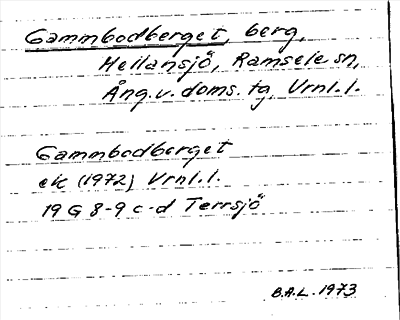 Gammbodberget, berg,
Mellansjö, Ramsele sn,
Ång.v. doms. tg, Vrnl.l.
Gammbodberget
ek (1972) Vrnl.l.
19 G 8-9 c-d Terrsjö
B.A.L. 1973